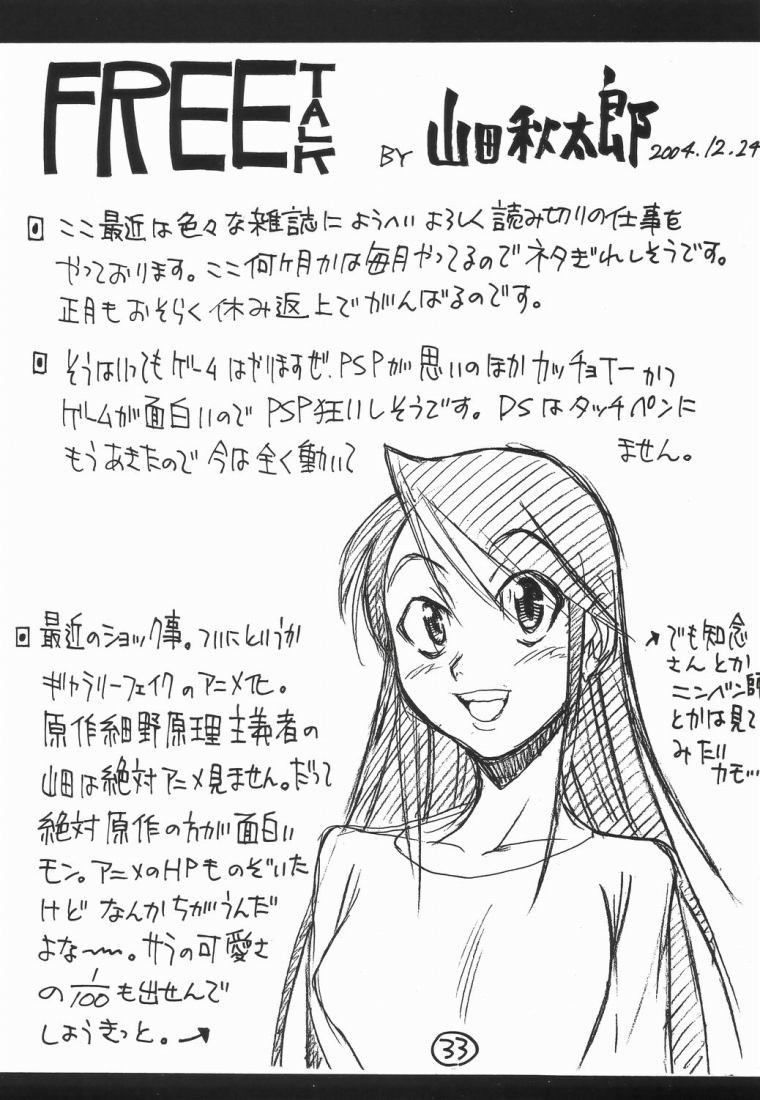 FREE TALK
BY 山田秋太郎 2004.12.24
ここ最近は色々な雑誌にようへいよろしく読み切りの仕事を
やっております。ここ何ヶ月かは毎月やってるのでネタぎれしそうです。
正月もおそらく休み返上でがんばるのです。
そうはいってもゲームはやりますぜ.PSPが思いのほかカッチョイーかつ
ゲームが面白いのでPSP狂いしそうです。DSはタッチペンに
もうあきたので今は全く動いて ません。
最近のショック事。ついにというか
ギャラリーフェイクのアニメ化。
原作細野原理主義者の
山田は絶対アニメ見ません。だって
絶対原作の方が面白い
モン。アニメのHPものぞいた
けどなんかちがうんだ
よな〜〜。サラの可愛さ
の1/100も出せんで
しょうきっと。→
↗でも知念
さんとか
ニンベン師
とかは見て
みたい
カモ…
33